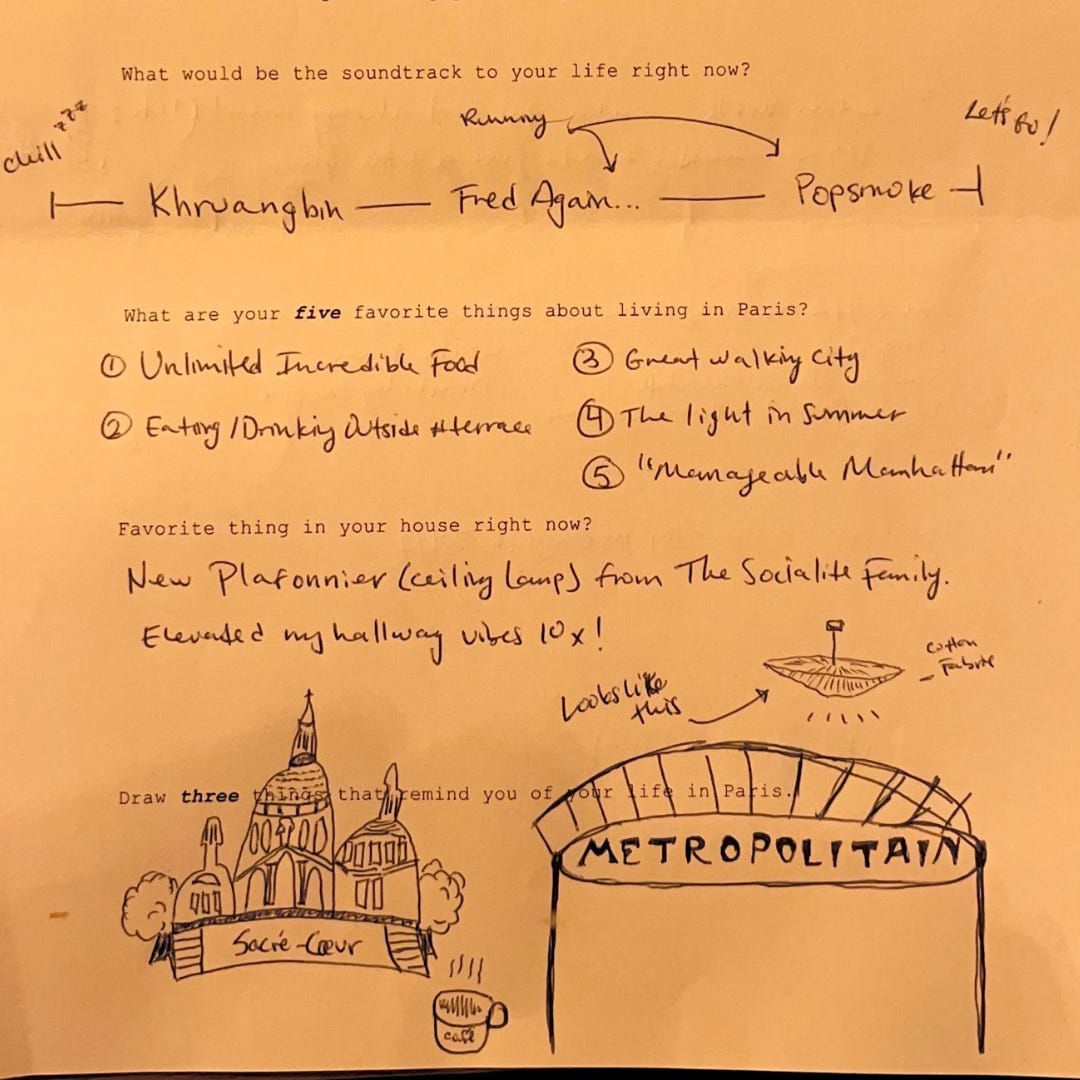 What would be the soundtrack to your life right now?
chill zzz
Running
Let's Go!
Khruangbin — Fred Again... — Popsmoke
What are your five favorite things about living in Paris?
① Unlimited Incredible Food
② Eating/Drinking Outside terrace
③ Great walking city
④ The light in Summer
⑤ "Manageable Manhattan"
Favorite thing in your house right now?
New Plafonnier (ceiling lamp) from The Socialite Family.
Elevated my hallway vibes 10x!
Looks like
this
cotton
fabric
Draw three things that remind you of your life in Paris.
METROPOLITAIN
Sacré-Cœur
café